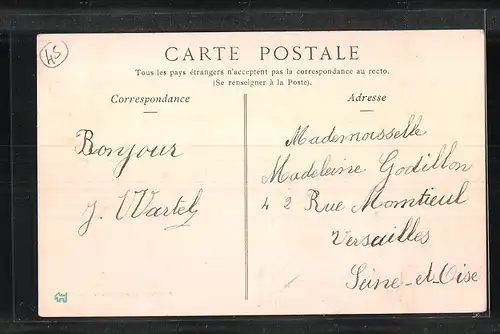 45
CARTE POSTALE
Tous les pays étrangers n'acceptent pas la correspondance au recto.
(Se renseigner à la Poste).
Correspondance
Bonjour
J. Wartel
Adresse
Mademoisselle
Madeleine Godillon
42 Rue Momtieul
Versailles
Seine-et-Oise